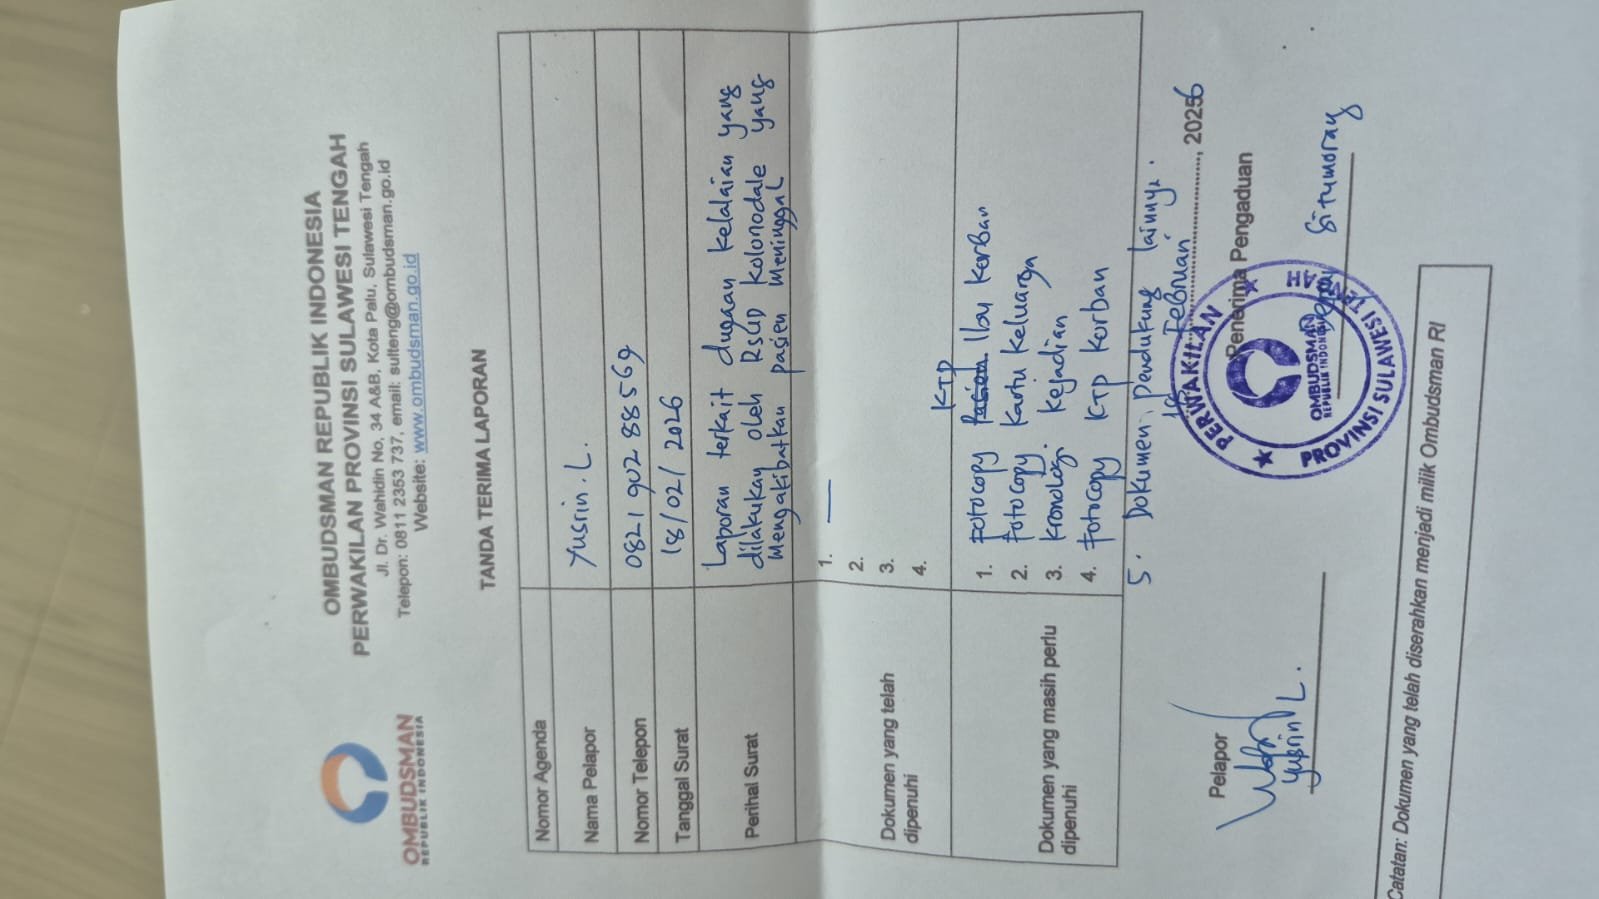 OMBUDSMAN
REPUBLIK INDONESIA
OMBUDSMAN REPUBLIK INDONESIA
PERWAKILAN PROVINSI SULAWESI TENGAH
Jl. Dr. Wahidin No, 34 A&B, Kota Palu, Sulawesi Tengah
Telepon: 0811 2353 737, email: sulteng@ombudsman.go.id
Website: www.ombudsman.go.id
TANDA TERIMA LAPORAN
Nomor Agenda
Nama Pelapor Yusrin. L.
Nomor Telepon 0821 902 88569
Tanggal Surat 18/02/2026
Perihal Surat
Laporan terkait dugaan kelalaian yang
dilakukan oleh RSUD Kolonodale yang
Mengakibatkan pasien Meninggal
Dokumen yang telah dipenuhi
1. —
2.
3.
4.
Dokumen yang masih perlu dipenuhi
KTP
1. fotocopy Ibu korban
2. fotocopy kartu keluarga
3. kronologi kejadian
4. fotocopy KTP korban
5. Dokumen pendukung lainnya.
18 Februari, 2026
Pelapor
Yusrin L.
Penerima Pengaduan
Situmorang
PERWAKILAN
OMBUDSMAN
REPUBLIK INDONESIA
PROVINSI SULAWESI TENGAH
Catatan: Dokumen yang telah diserahkan menjadi milik Ombudsman RI